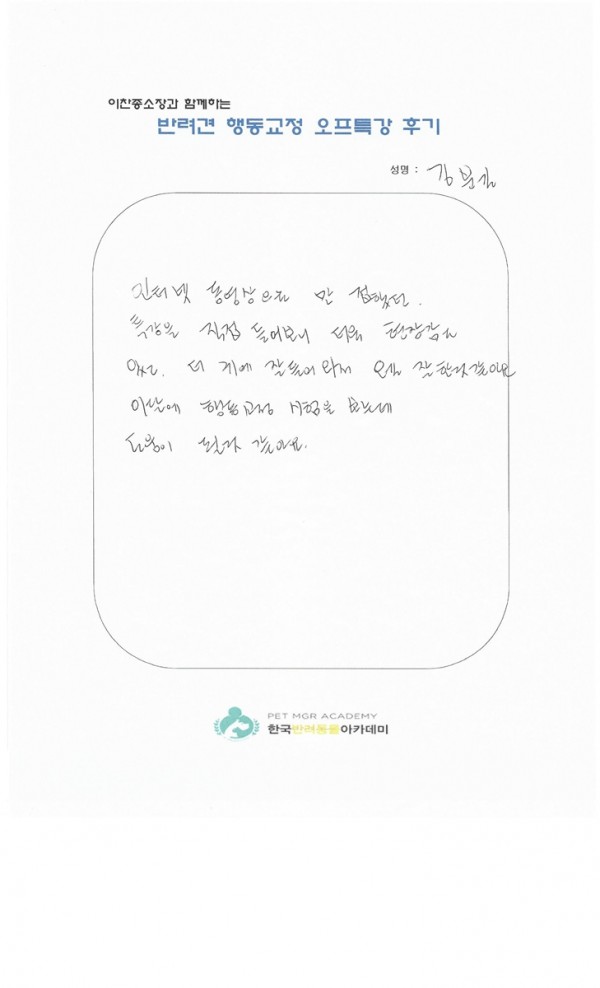 이찬종소장과 함께하는
반려견 행동교정 오프특강 후기
성명 : 김
인터넷 동영상으로 만 접했던.
특강을 직접 들어보니 더욱 현장감
있고. 더 귀에 잘들어 와서 잘 한것 같아요
이달에 행동교정 시험을 보는데
도움이 될것 같아요.
PET MGR ACADEMY
한국반려동물아카데미